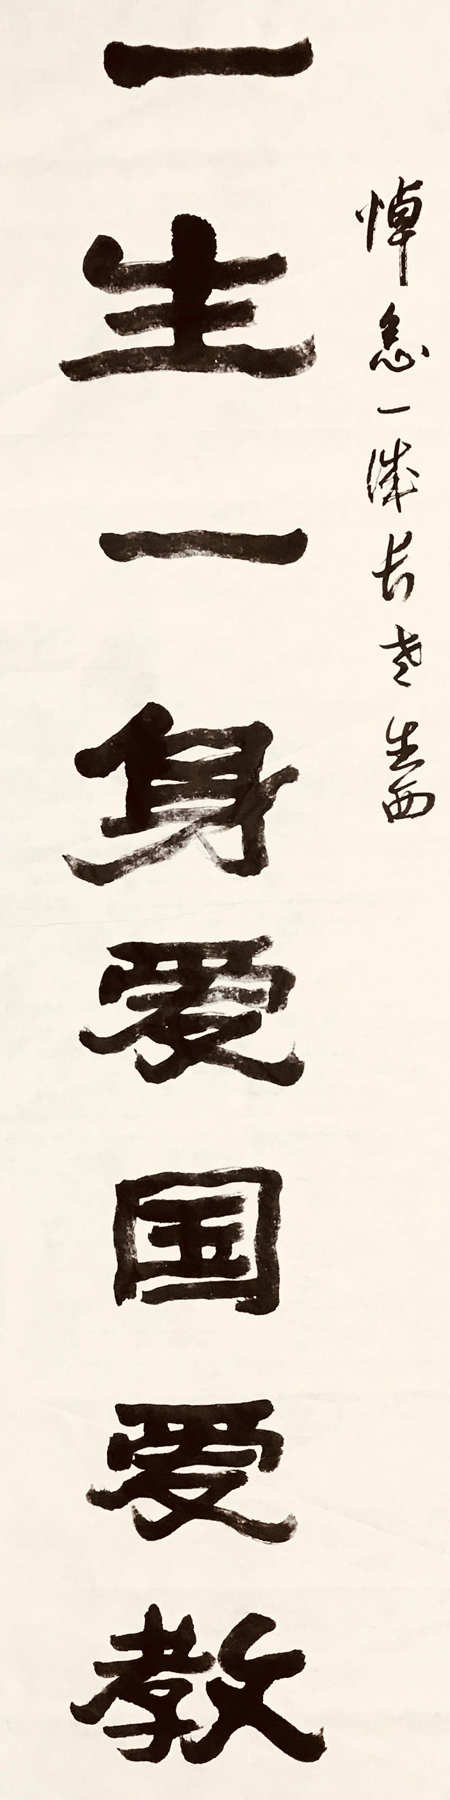 悼念一诚长老生西
一生一身爱国爱教